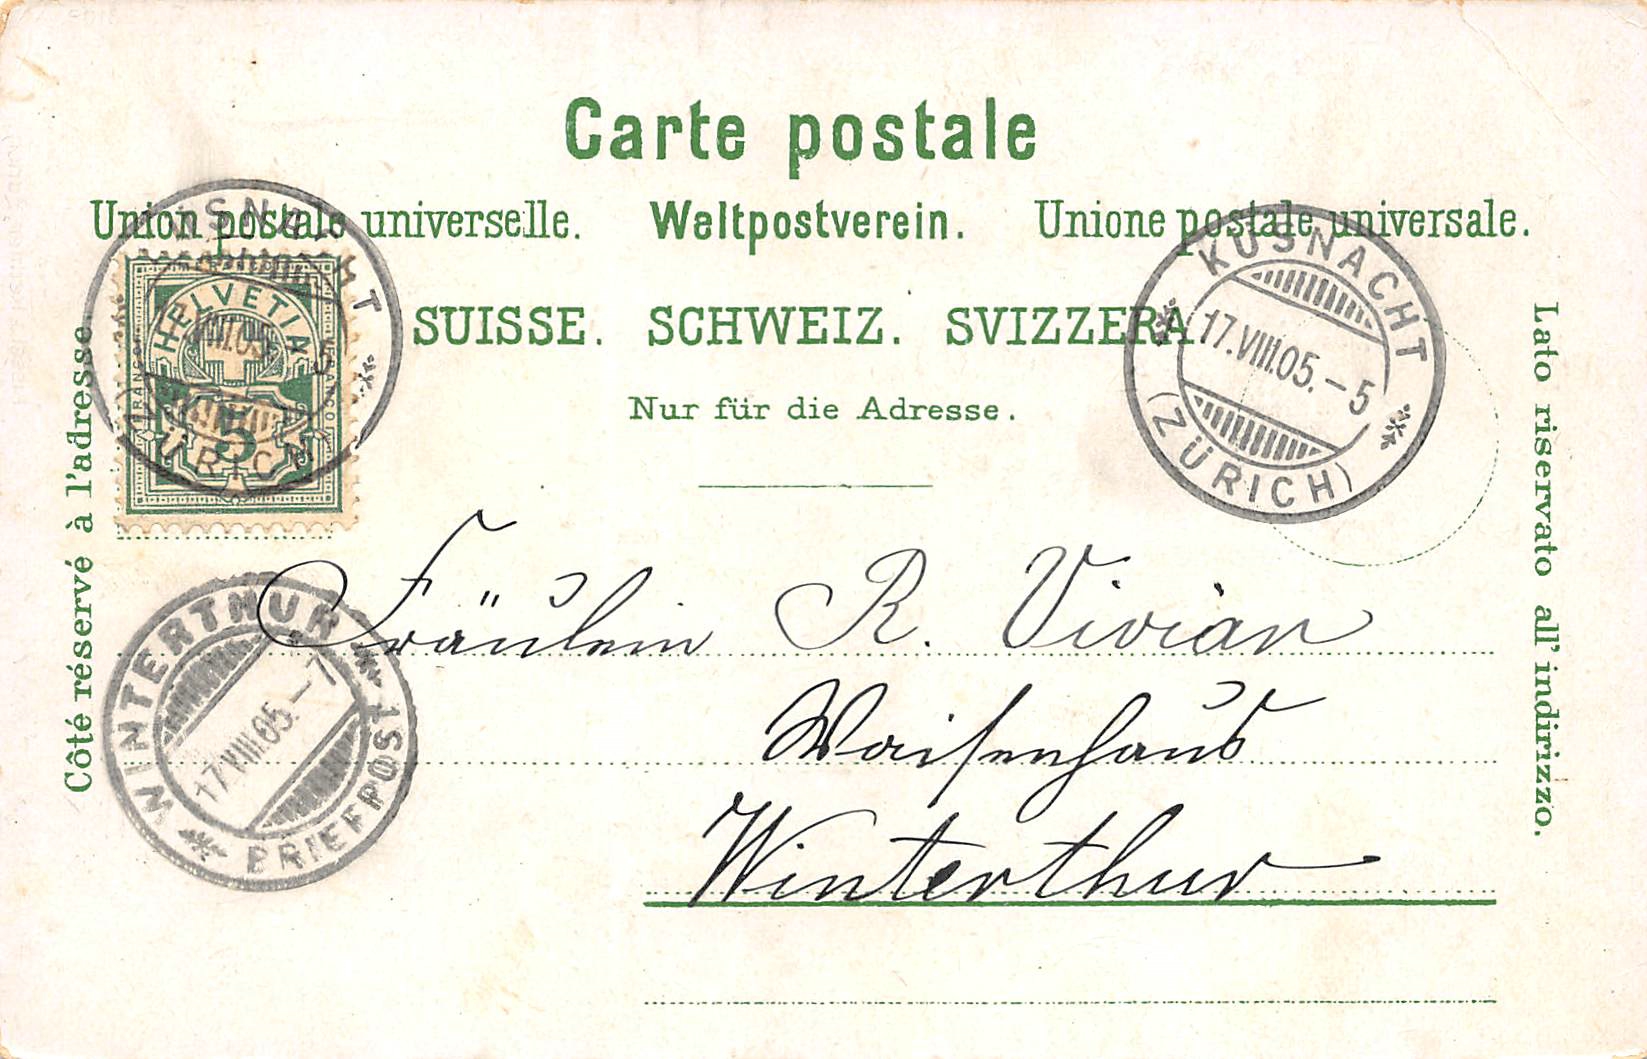 Carte postale
Union postale universelle. Weltpostverein. Unione postale universale.
SUISSE. SCHWEIZ. SVIZZERA
Nur für die Adresse.
Côté réservé à l'adresse
Lato riservato all' indirizzo.
HELVETIA
FRANCO
5
KÜSNACHT
17.VIII.05.-5
(ZÜRICH)
WINTERTHUR
17.VIII.05.-7
BRIEFPOST
Fräulein R. Vivian
Waisenhaus
Winterthur